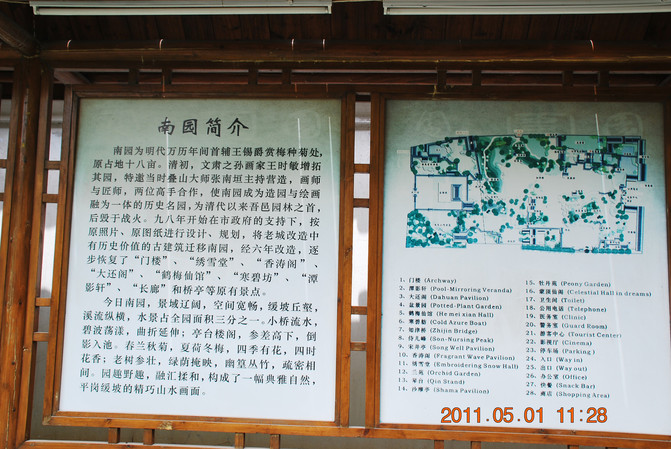 南园简介
南园为明代万历年间首辅王锡爵赏梅种菊处，
原占地十八亩。清初，文肃之孙画家王时敏增拓
其园，特邀当时叠山大师张南垣主持营造，画师
与匠师，两位高手合作，使南园成为造园与绘画
融为一体的历史名园，为清代以来吾邑园林之首，
后毁于战火。九八年开始在市政府的支持下，按
原照片、原图纸进行设计、规划，将老城改造中
有历史价值的古建筑迁移南园，经六年改造，逐
步恢复了“门楼”、“绣雪堂”、“香涛阁”、
“大还阁”、“鹤梅仙馆”、“寒碧坊”、“潭
影轩”、“长廊”和桥亭等原有景点。
今日南园，景域辽阔，空间宽畅，缓坡丘壑，
溪流纵横，水景占全园面积三分之一。小桥流水，
碧波荡漾，曲折延伸；亭台楼阁，参差高下，倒
影入池。春兰秋菊，夏荷冬梅，四季有花，四时
花香；老树参壮，绿荫掩映，幽篁丛竹，疏密相
间。园趣野趣，融汇揉和，构成了一幅典雅自然，
平岗缓坡的精巧山水画面。
1. 门楼 (Archway)
2. 潭影轩 (Pool-Mirroring Veranda)
3. 大还阁 (Dahuan Pavilion)
4. 盆景园 (Potted-Plant Garden)
5. 鹤梅仙馆 (He mei xian Hall)
6. 寒碧舫 (Cold Azure Boat)
7. 知津桥 (Zhijin Bridge)
8. 侍儿峰 (Son-Nursing Peak)
9. 宋井亭 (Song Well Pavilion)
10. 香涛阁 (Fragrant Wave Pavilion)
11. 绣雪堂 (Embroidering Snow Hall)
12. 兰苑 (Orchid Garden)
13. 琴台 (Qin Stand)
14. 沙嘛亭 (Shama Pavilion)
15. 牡丹苑 (Peony Garden)
16. (Celestial Hall in dreams)
17. 卫生间 (Toilet)
18. 公用电话 (Telephone)
19. 医务室 (Clinic)
20. 警务室 (Guard Room)
21. 游客中心 (Tourist Center)
22. 影视厅 (Cinema)
23. 停车场 (Parking)
24. 入口 (Way in)
25. 出口 (Way out)
26. 办公室 (Office)
27. 快餐 (Snack Bar)
28. 商店 (Shopping Area)
2011.05.01 11:28